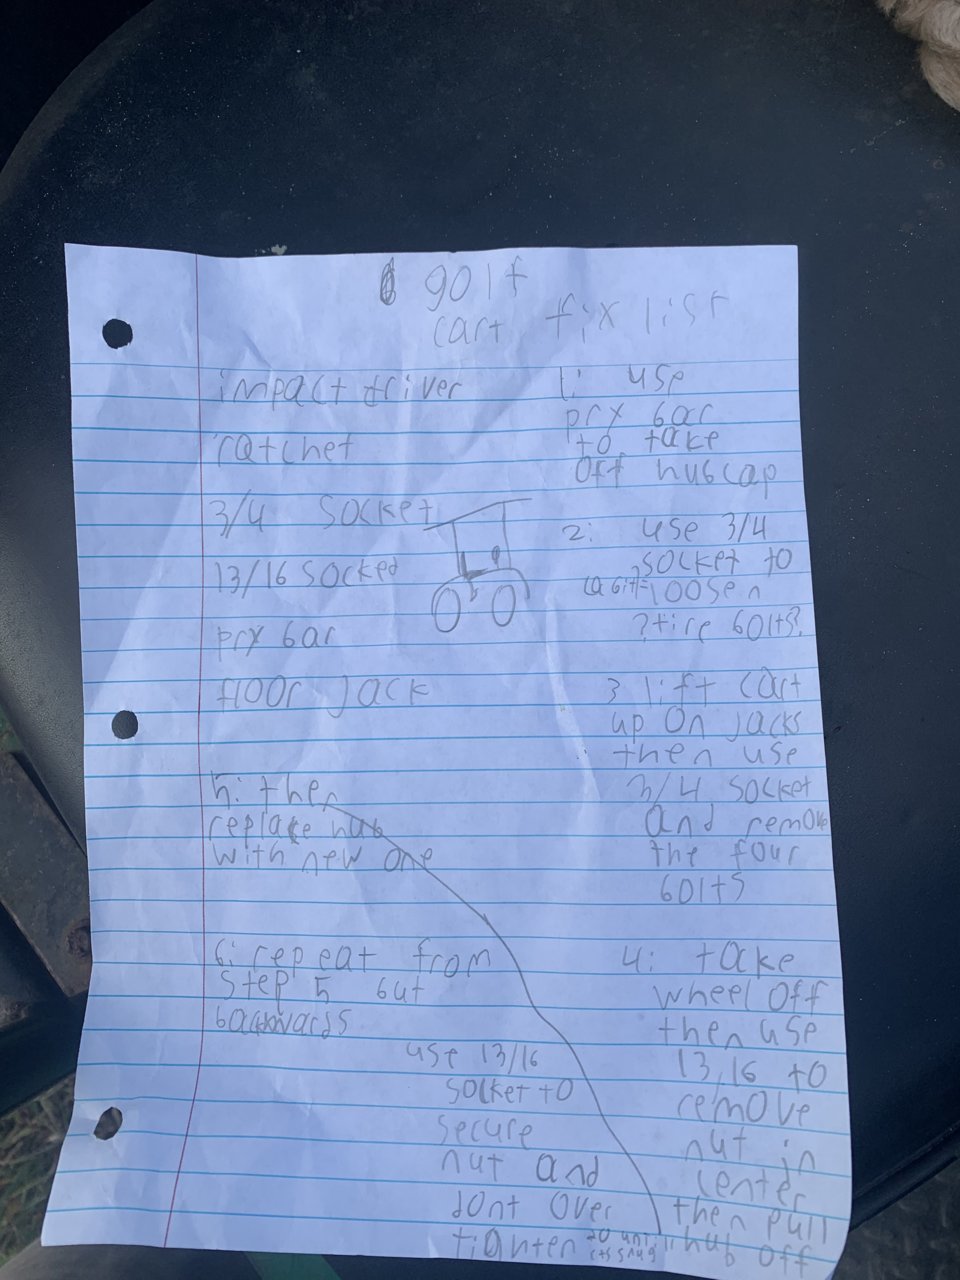 golf
cart fix list
impact driver
ratchet
3/4 socket
13/16 socked
pry bar
floor jack
1: use
pry bar
to take
off hubcap
2: use 3/4
socket to
loosen
?tire bolts?
3 lift cart
up on jacks
then use
3/4 socket
and remove
the four
bolts
4: take
wheel off
then use
13,16 to
remove
nut in
center
then pull
hub off
5: then
replace hub
with new one
6: repeat from
step 5 but
backwards
use 13/16
socket to
secure
nut and
dont over
tighten